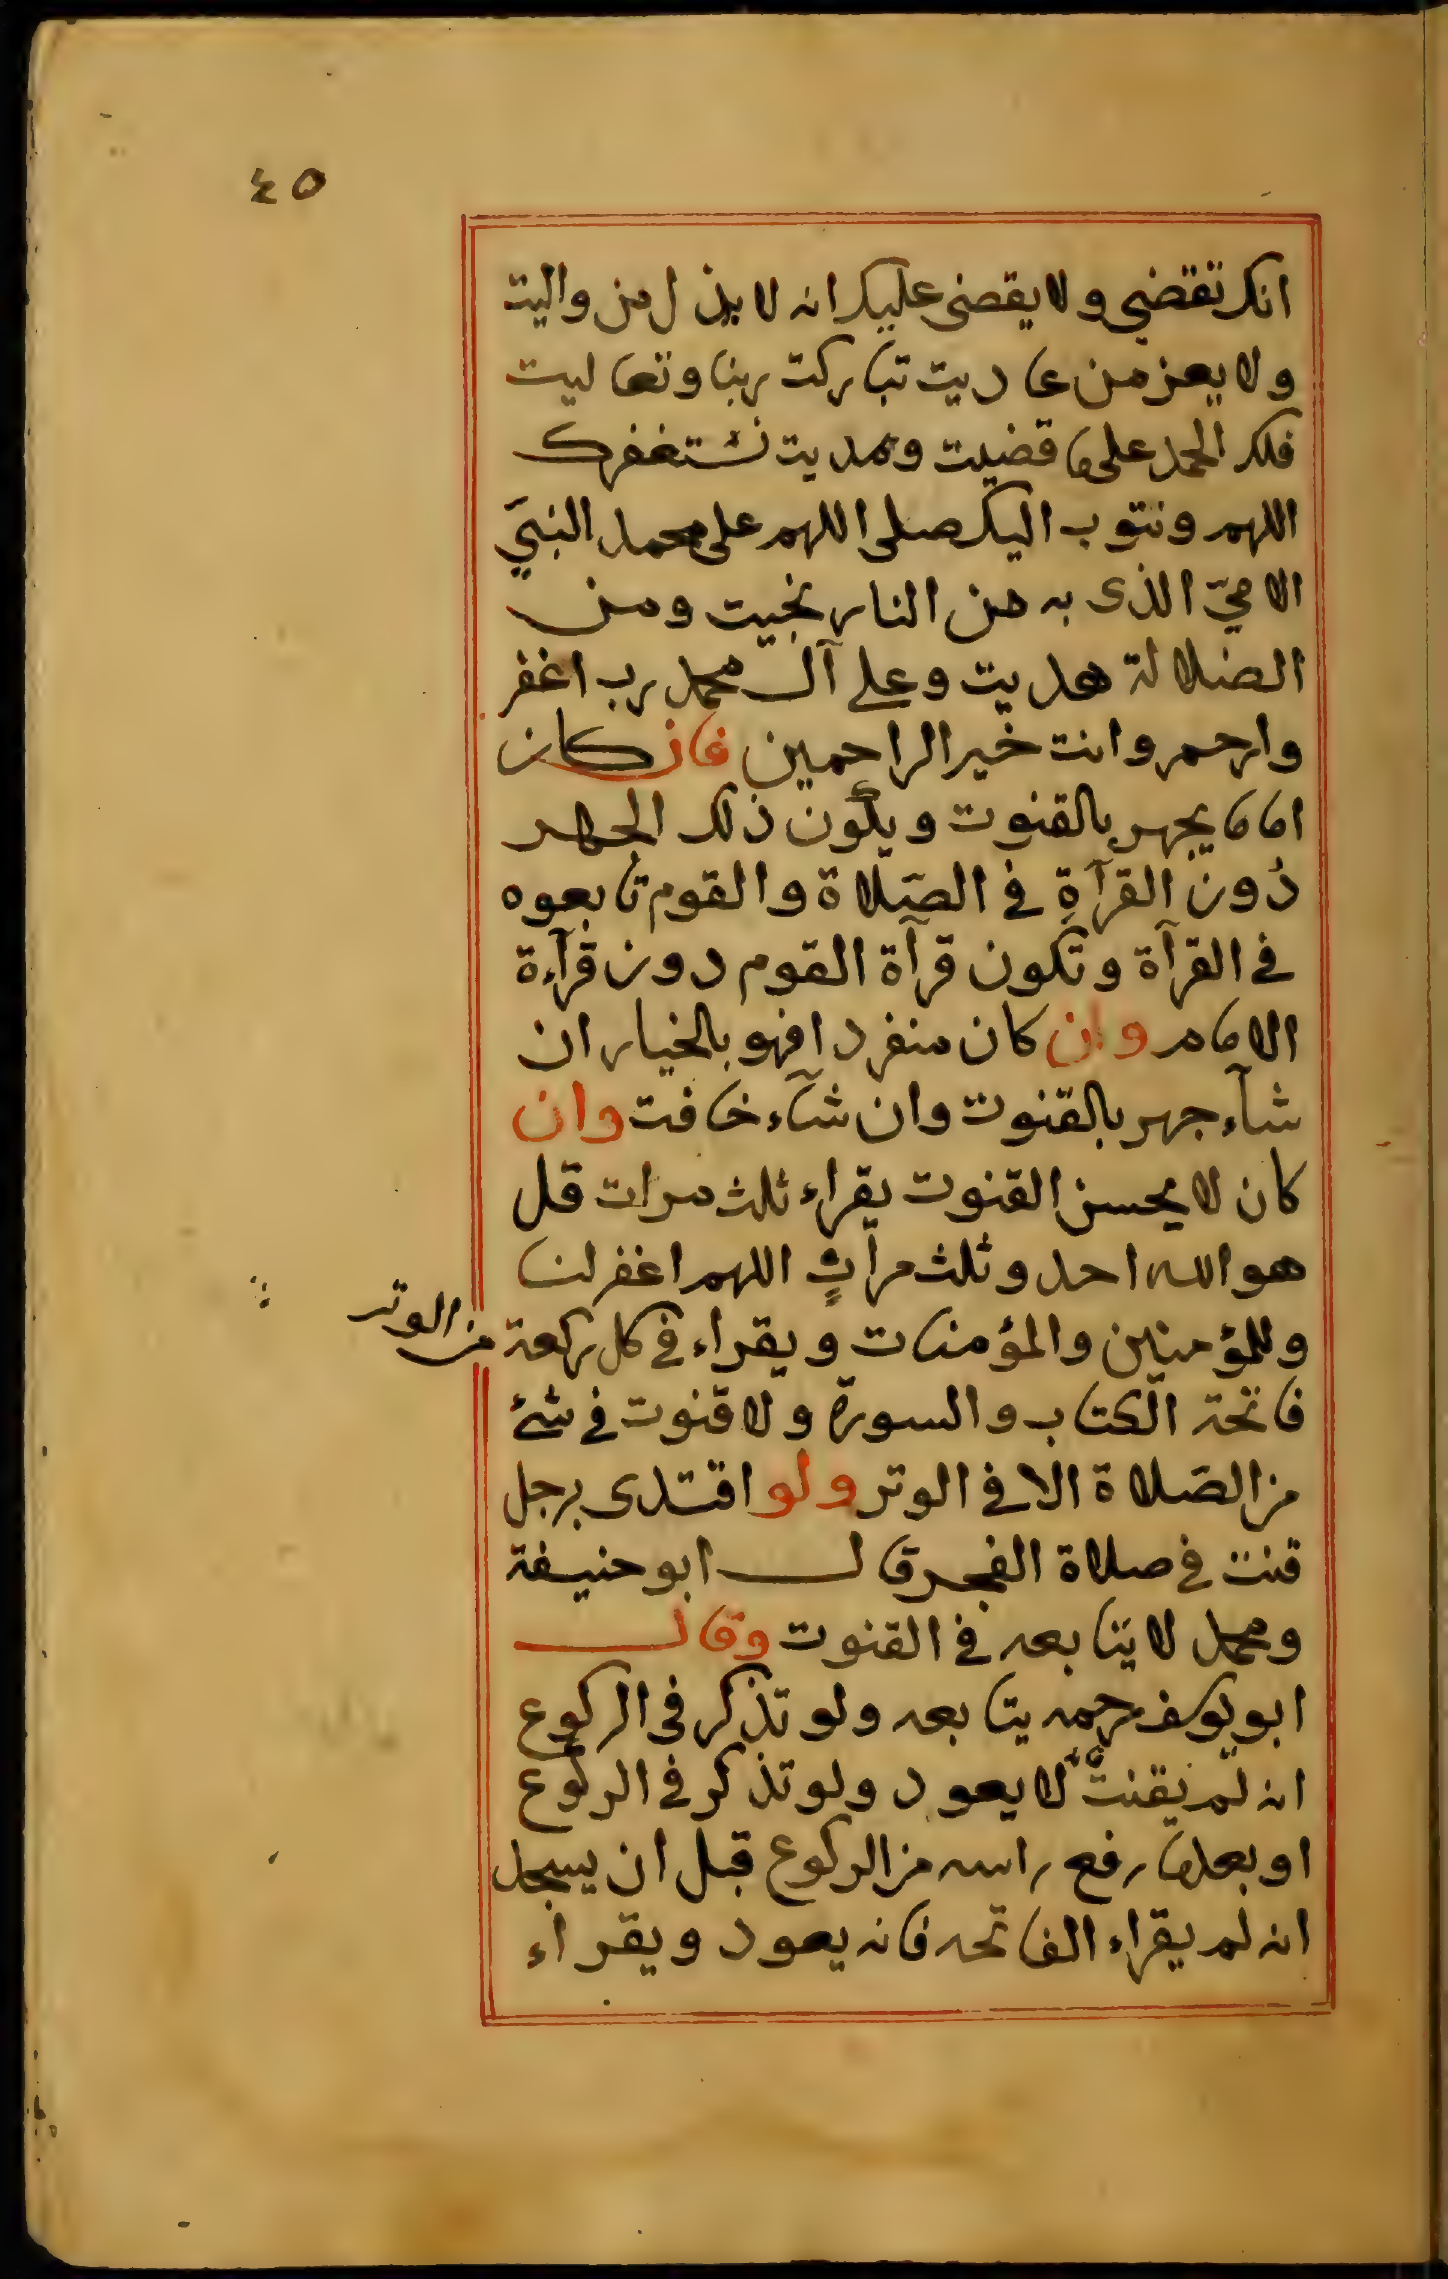 ٤٥
انك تقضي ولا يقضى عليك انه لا يذل من واليت
ولا يعز من عاديت تباركت ربنا وتعاليت
فلك الحمد على ما قضيت وهديت نستغفرك
اللهم ونتوب اليك صلى اللهم على محمد النبيّ
الاميّ الذى به من النار نجيت ومن
الضلالة هديت وعلى آل محمد رب اغفر
وارحم وانت خير الراحمين فان كان
اماما يجهر بالقنوت ويكون ذلك الجهر
دُون القرآةِ في الصّلاة والقوم تابعوه
في القرآة وتكون قرآة القوم دون قرآءة
الامام وان كان منفردا فهو بالخيار ان
شآء جهر بالقنوت وان شآء خافت وان
كان لا يحسن القنوت يقراء ثلث مرات قل
هو الله احد وثلث مراتٍ اللهم اغفر لنا
وللمؤمنين والمؤمنات ويقراء في كل ركعة من الوتر
فاتحة الكتاب والسورة ولا قنوت في شئ
من الصّلاة الا في الوتر ولو اقتدى برجل
قنت في صلاة الفجر قال ابو حنيفة
ومحمد لا يتابعه في القنوت وقال
ابو يوسف رحمه يتابعه ولو تذكر فى الركوع
انه لم يقنت لا يعود ولو تذكر في الركوع
او بعد ما رفع راسه من الركوع قبل ان يسجد
انه لم يقراء الفاتحه فانه يعود ويقراء